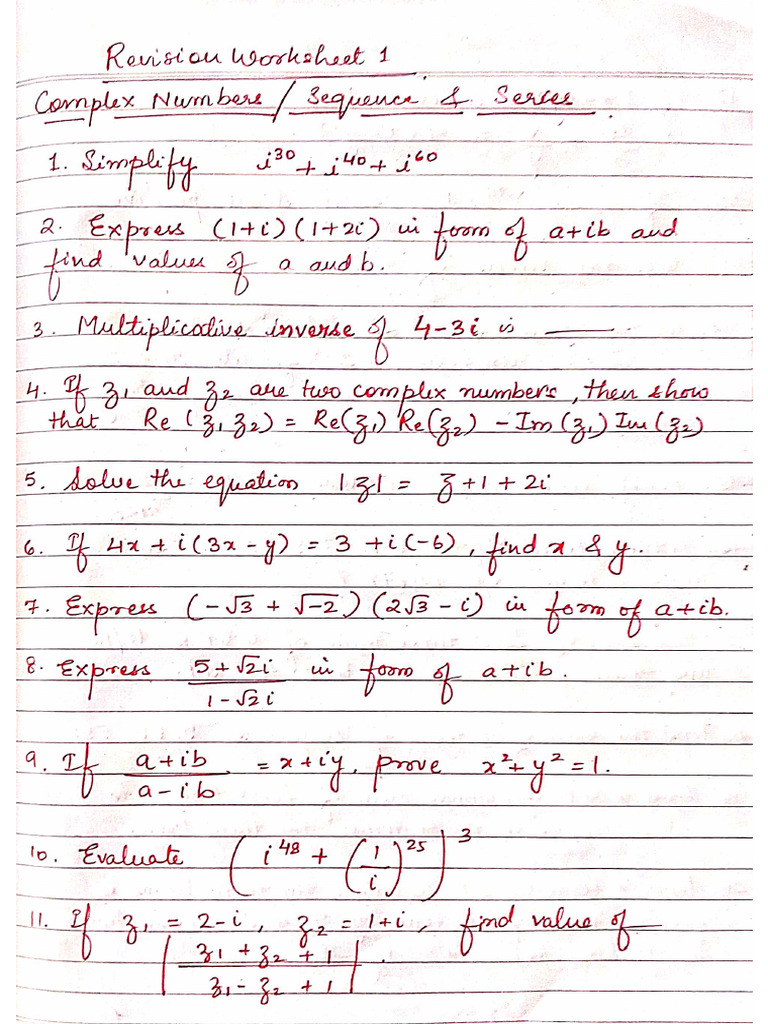 Revision Worksheet 1
Complex Numbers / Sequence & Series
1. Simplify i³⁰ + i⁴⁰ + i⁶⁰
2. Express (1+i)(1+2i) in form of a+ib and
find values of a and b.
3. Multiplicative inverse of 4-3i is ____.
4. If z₁ and z₂ are two complex numbers, then show
that Re(z₁z₂) = Re(z₁) Re(z₂) - Im(z₁) Im(z₂)
5. Solve the equation |z| = z+1+2i
6. If 4x + i(3x-y) = 3 + i(-6), find x & y.
7. Express (-√3 + √-2)(2√3 - i) in form of a+ib.
8. Express (5+√2i)/(1-√2i) in form of a+ib.
9. If (a+ib)/(a-ib) = x+iy, prove x²+y²=1.
10. Evaluate (i⁴⁸ + (1/i)²⁵)³
11. If z₁ = 2-i, z₂ = 1+i, find value of
|(z₁+z₂+1)/(z₁-z₂+1)|.